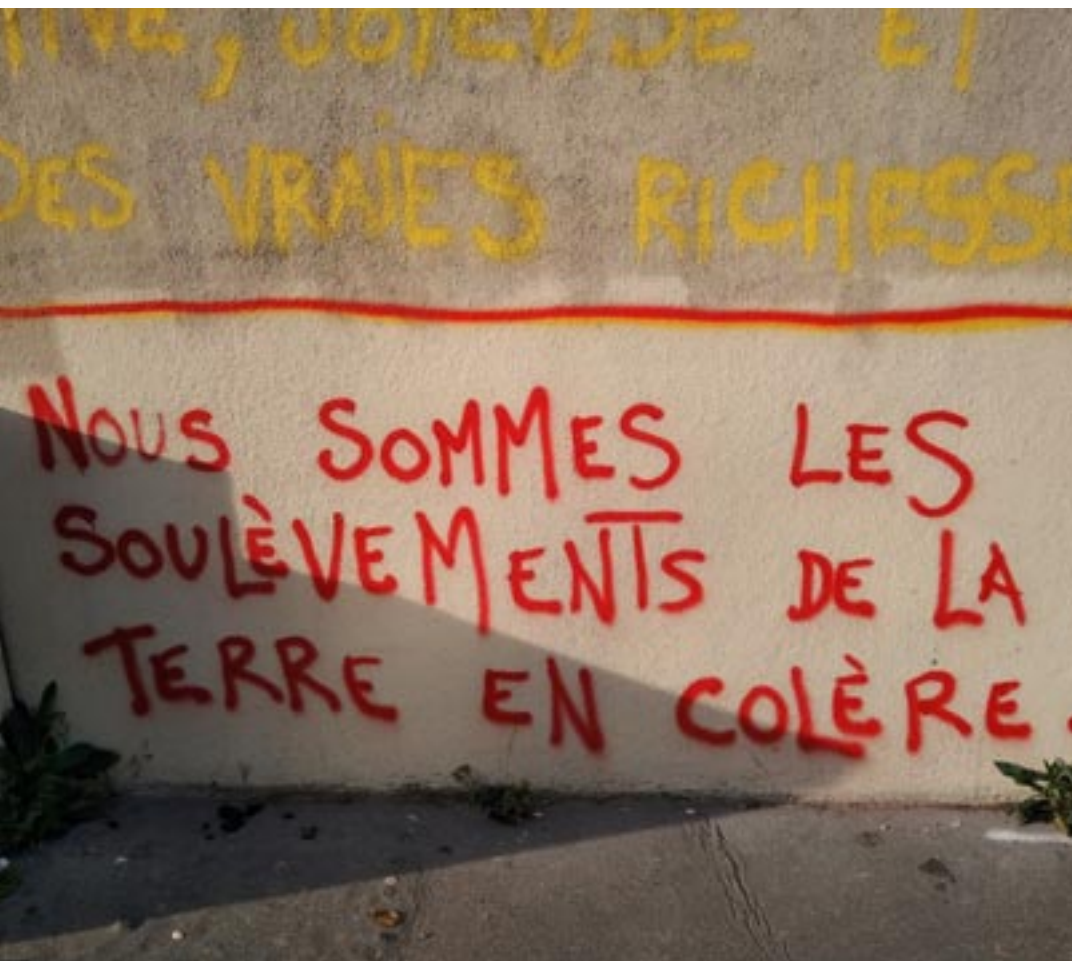 , JOYEUSE ET
DES VRAIES RICHESSE
NOUS SOMMES LES
SOULÈVEMENTS DE LA
TERRE EN COLÈRE.